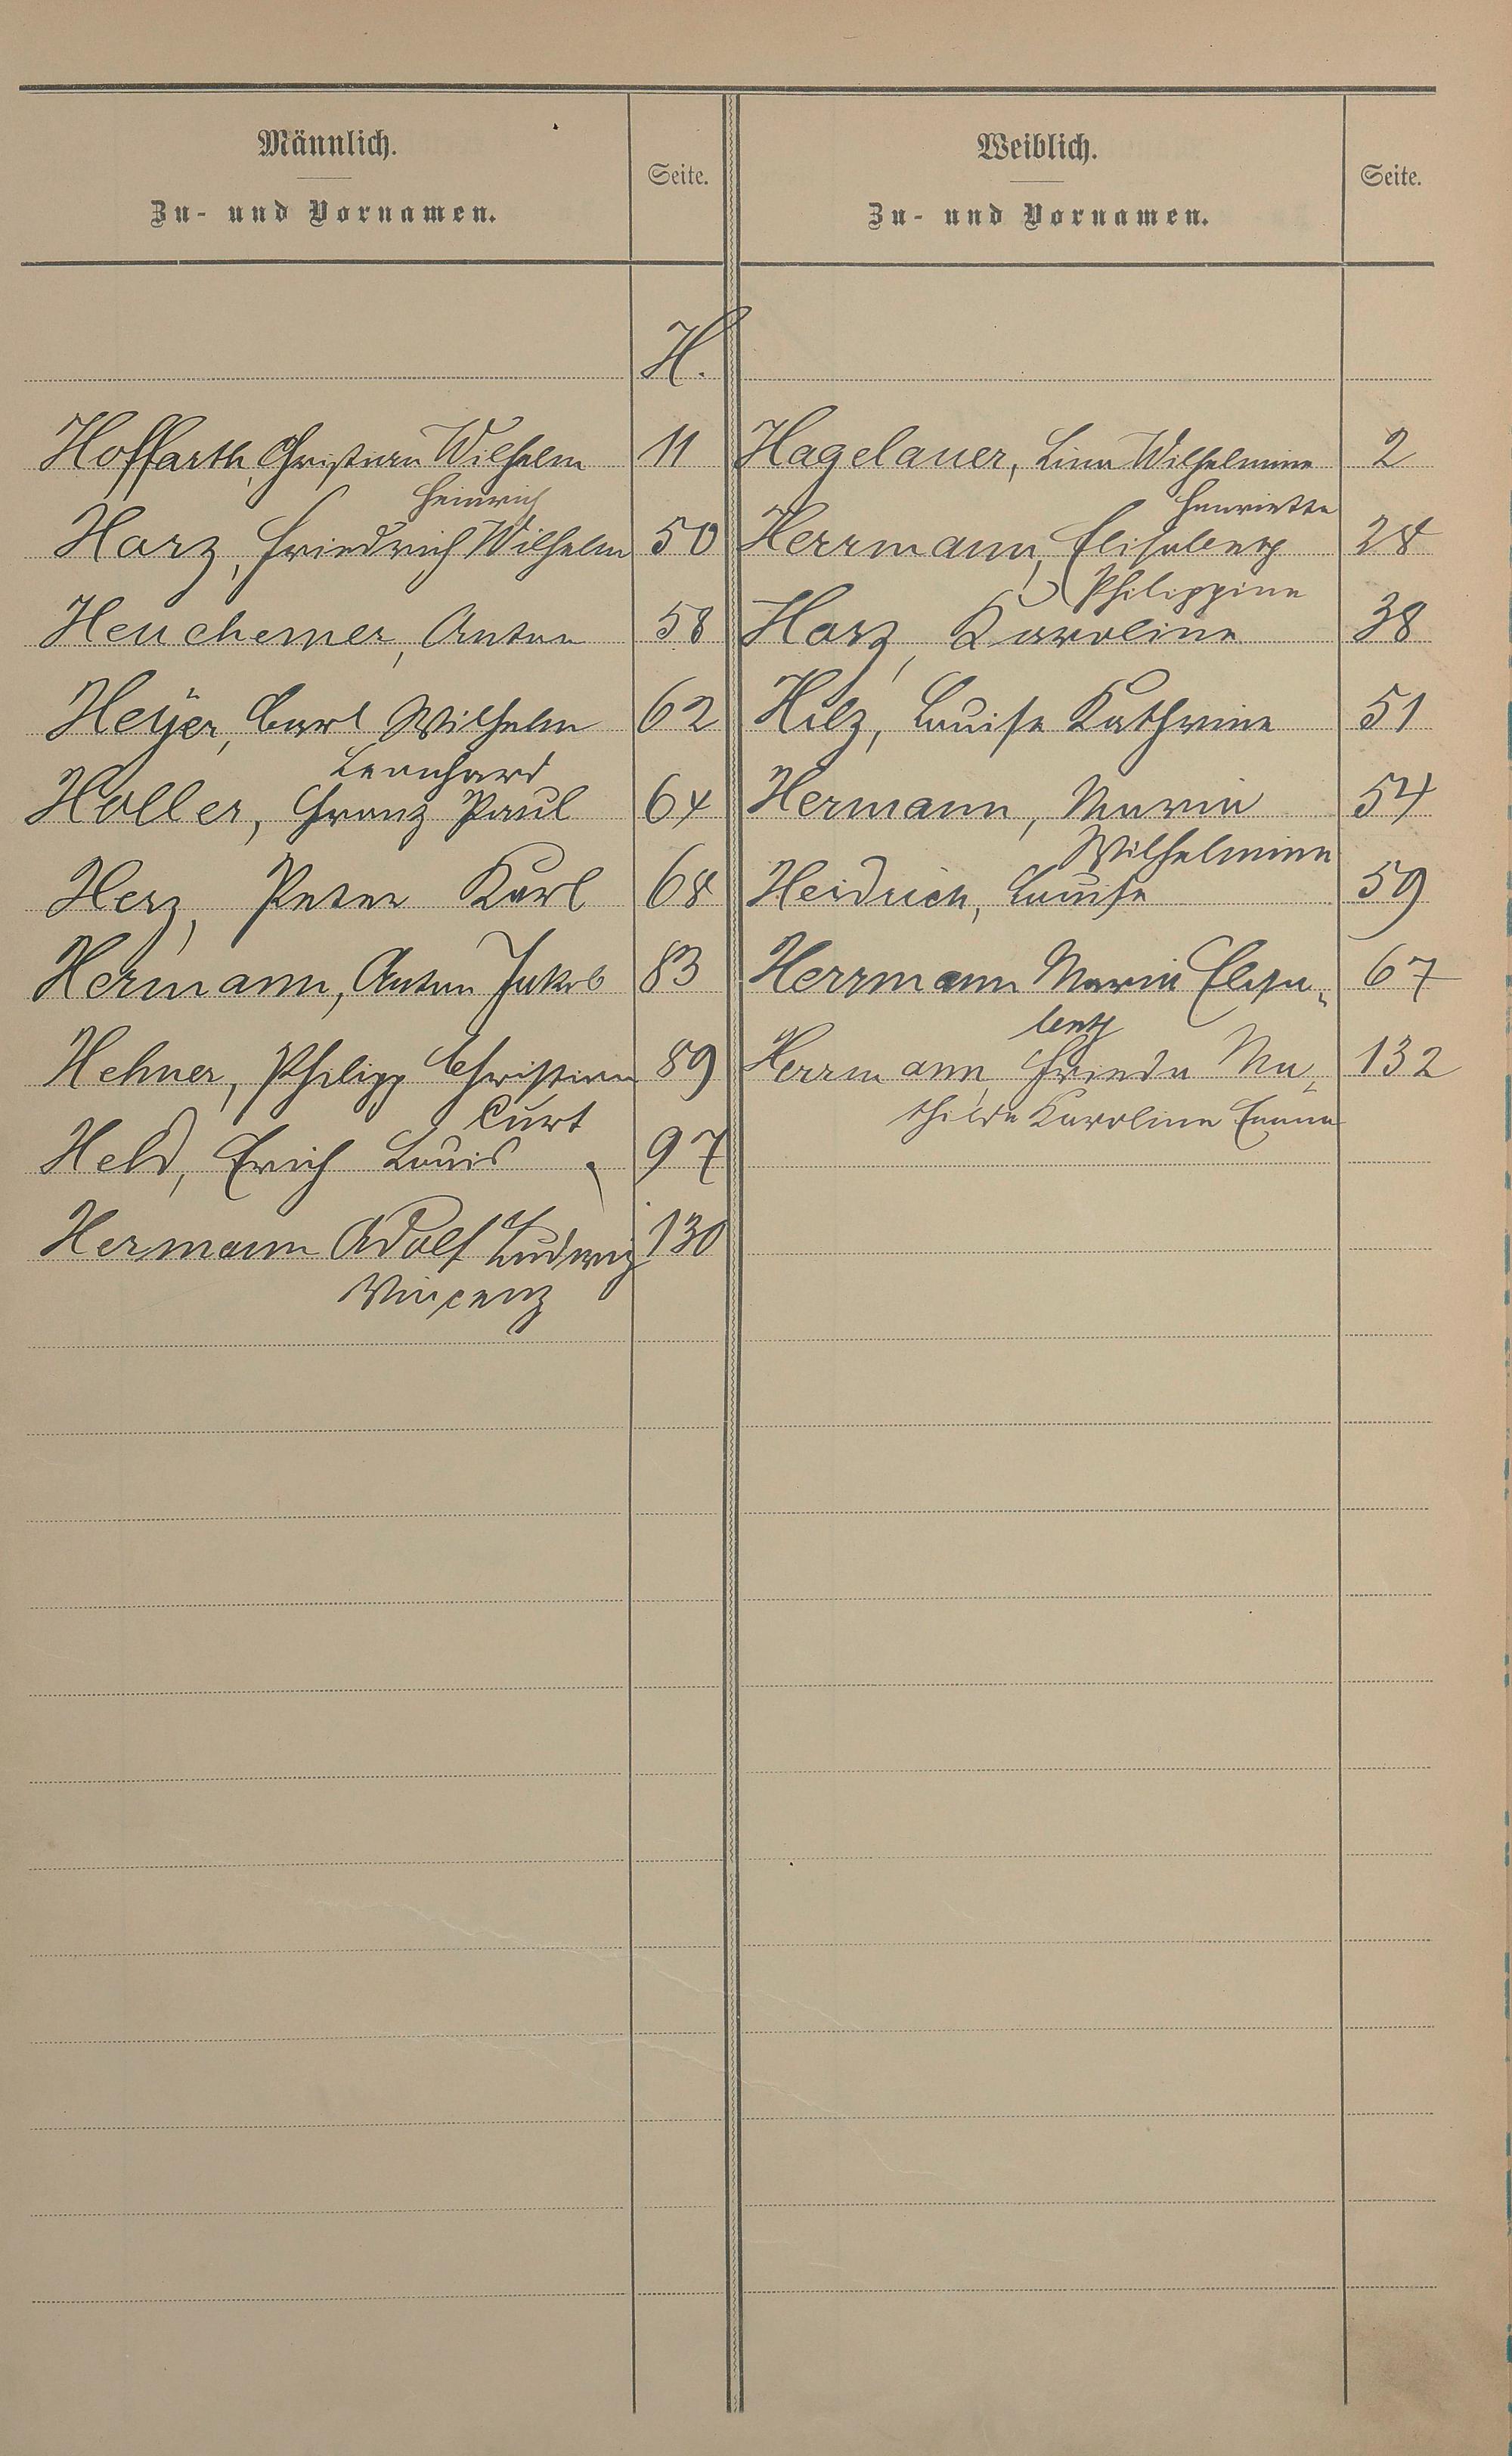 Männlich.
Zu- und Vornamen.
Seite.
Weiblich.
Zu- und Vornamen.
Seite.
H.
Hoffarth, Christian Wilhelm 11
Heinrich
Harz, Friedrich Wilhelm 50
Heuchemer, Anton 58
Heÿer, Carl Wilhelm 62
Leonhard
Holler, Franz Paul 64
Herz, Peter Karl 68
Hermann, Anton Jakob 83
Hehner, Philipp Christian 89
Curt
Held, Erich Louis 97
Hermann Adolf Ludwig 130
Vincenz
Hagelauer, Lina Wilhelmine 2
Henriette
Herrmann, Elisabeth 28
Philippine
Harz, Karoline 38
Hilz, Louise Kathrine 51
Hermann, Maria 54
Wilhelmine
Heidrich, Louise 59
Herrmann Maria Elisa- 67
beth
Herrmann, Frieda Ma- 132
thilde Karoline Emma